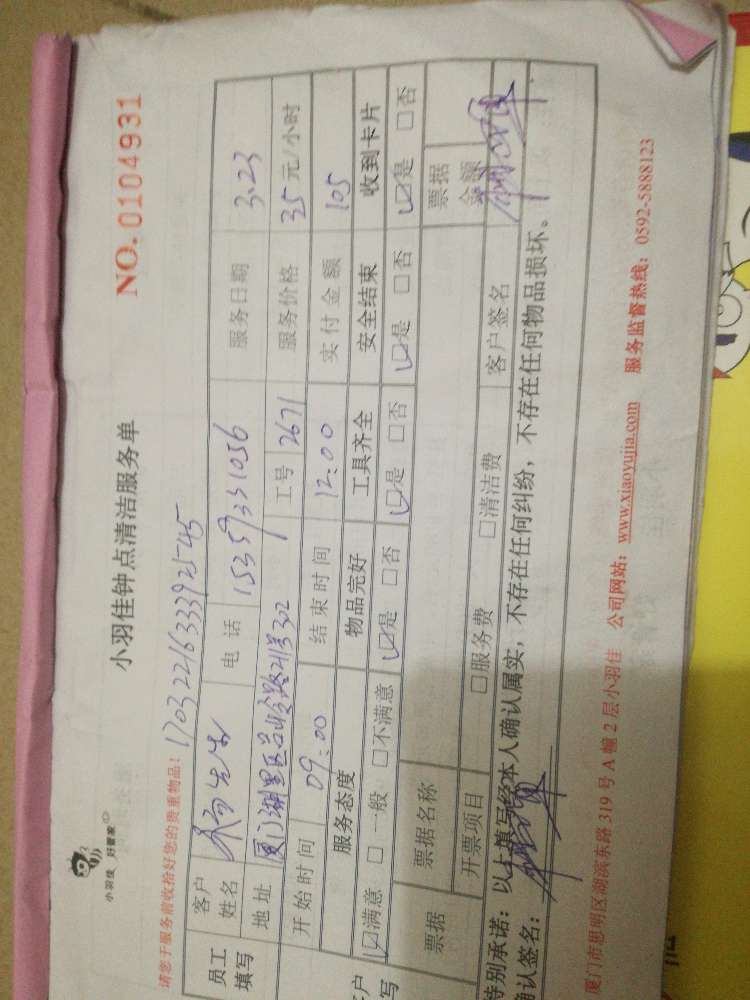 小羽佳 好管家
小羽佳钟点清洁服务单
NO. 0104931
请您于服务前收拾好您的贵重物品! 1703221633392545
员工填写 客户姓名 杨先生 电话 15359331056 服务日期 3.23
地址 厦门湖里区 302 工号 2671 服务价格 35 元/小时
开始时间 09:00 结束时间 12:00 实付金额 105
服务态度 物品完好 工具齐全 安全结束 收到卡片
☑满意 □一般 □不满意 ☑是 □否 ☑是 □否 ☑是 □否 ☑是 □否
票据 票据名称 票据金额
开票项目 □服务费 □清洁费 客户签名
特别承诺:以上填写经本人确认属实,不存在任何纠纷,不存在任何物品损坏。
确认签名:
厦门市思明区湖滨东路 319 号 A 幢 2 层小羽佳 公司网站:www.xiaoyujia.com 服务监督热线:0592-5888123